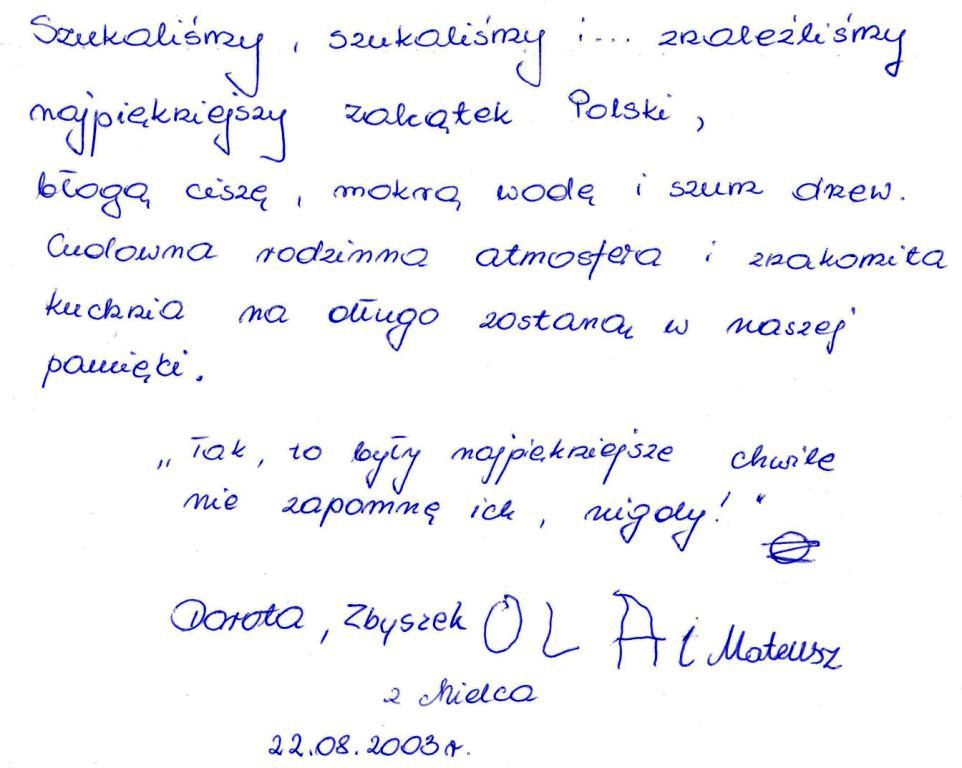 Szukaliśmy, szukaliśmy i... znaleźliśmy
najpiękniejszy zakątek Polski,
błogą ciszę, mokrą wodę i szum drzew.
Cudowna rodzinna atmosfera i znakomita
kuchnia na długo zostaną w naszej
pamięci.
„Tak, to były najpiękniejsze chwile
nie zapomnę ich, nigdy!"
Dorota, Zbyszek OLA i Mateusz
z Mielca
22.08.2003r.